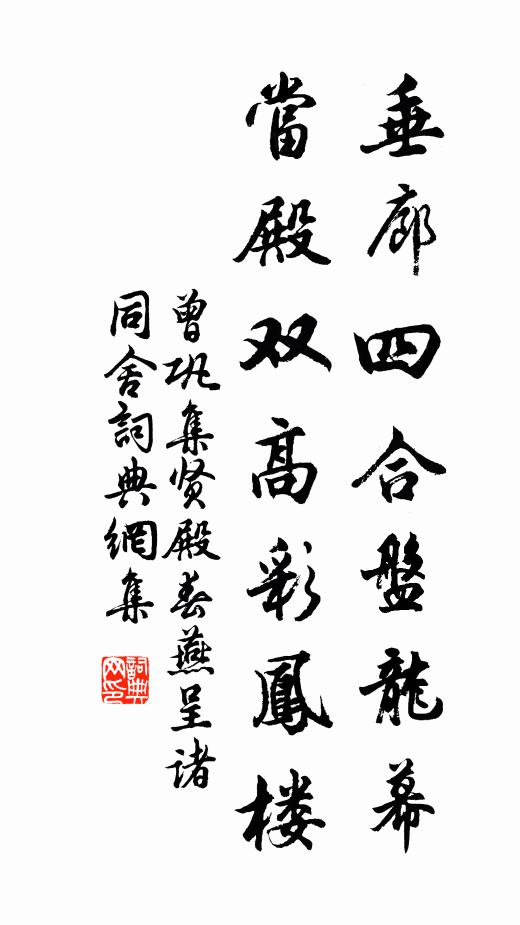 垂廊四合盤龍幕
當殿双高彩鳳楼
曾巩集贤殿春燕呈诸
同舍詞典網集
詞典网印